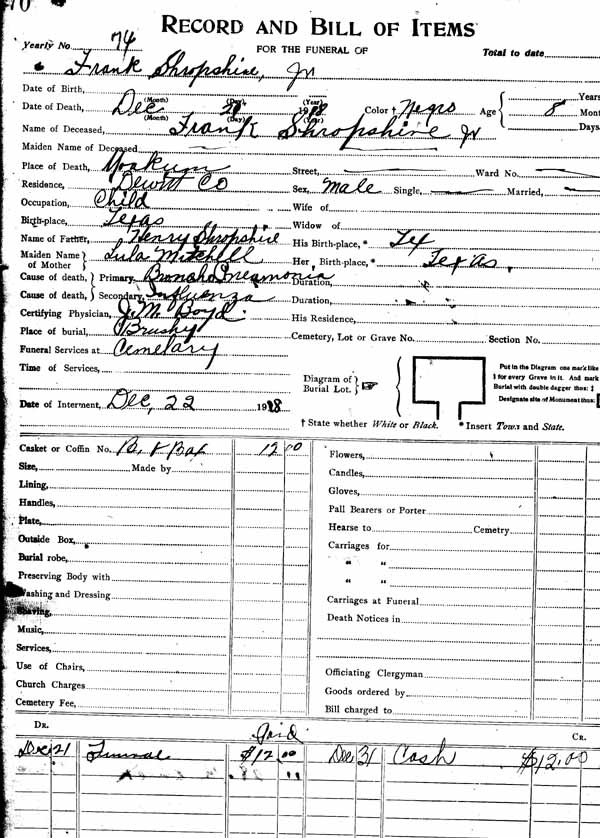 RECORD AND BILL OF ITEMS
Yearly No. 74 FOR THE FUNERAL OF Total to date
Frank Shropshire, Jr
Date of Birth, (Month) (Day) (Year) Years
Date of Death, Dec (Month) (Day) 1918 (Year) Color † Negro Age 8 Mont
Days
Name of Deceased, Frank Shropshire Jr
Maiden Name of Deceased
Place of Death, Yoakum Street, Ward No.
Residence, Dewitt Co Sex, Male Single, Married,
Occupation, Child Wife of
Birth-place, Texas Widow of
Name of Father, Henry Shropshire His Birth-place, * Tex
Maiden Name of Mother Lula Mitchell Her Birth-place, * Texas,
Cause of death, Primary, Broncho Pneamonia Duration,
Cause of death, Secondary, Influenza Duration,
Certifying Physician, J. M. Boyd His Residence,
Place of burial, Brushy Cemetery, Lot or Grave No. Section No.
Funeral Services at Cemetary
Time of Services,
Diagram of Burial Lot.
Put in the Diagram one mark like
1 for every Grave in it. And mark
Burial with double dagger thus: ‡
Designate site of Monument thus:
Date of Interment, Dec, 22 1918
† State whether White or Black. * Insert Town and State.
Casket or Coffin No. B. & Box 12 00 Flowers,
Size, Made by Candles,
Lining, Gloves,
Handles, Pall Bearers or Porter
Plate, Hearse to Cemetry
Outside Box, Carriages for
Burial robe, " "
Preserving Body with " "
Washing and Dressing Carriages at Funeral
Shaving, Death Notices in
Music,
Services,
Use of Chairs, Officiating Clergyman
Church Charges Goods ordered by
Cemetery Fee, Bill charged to
DR. Paid CR.
Dec 21 Funeral $12.00 Dec 31 Cash $12.00